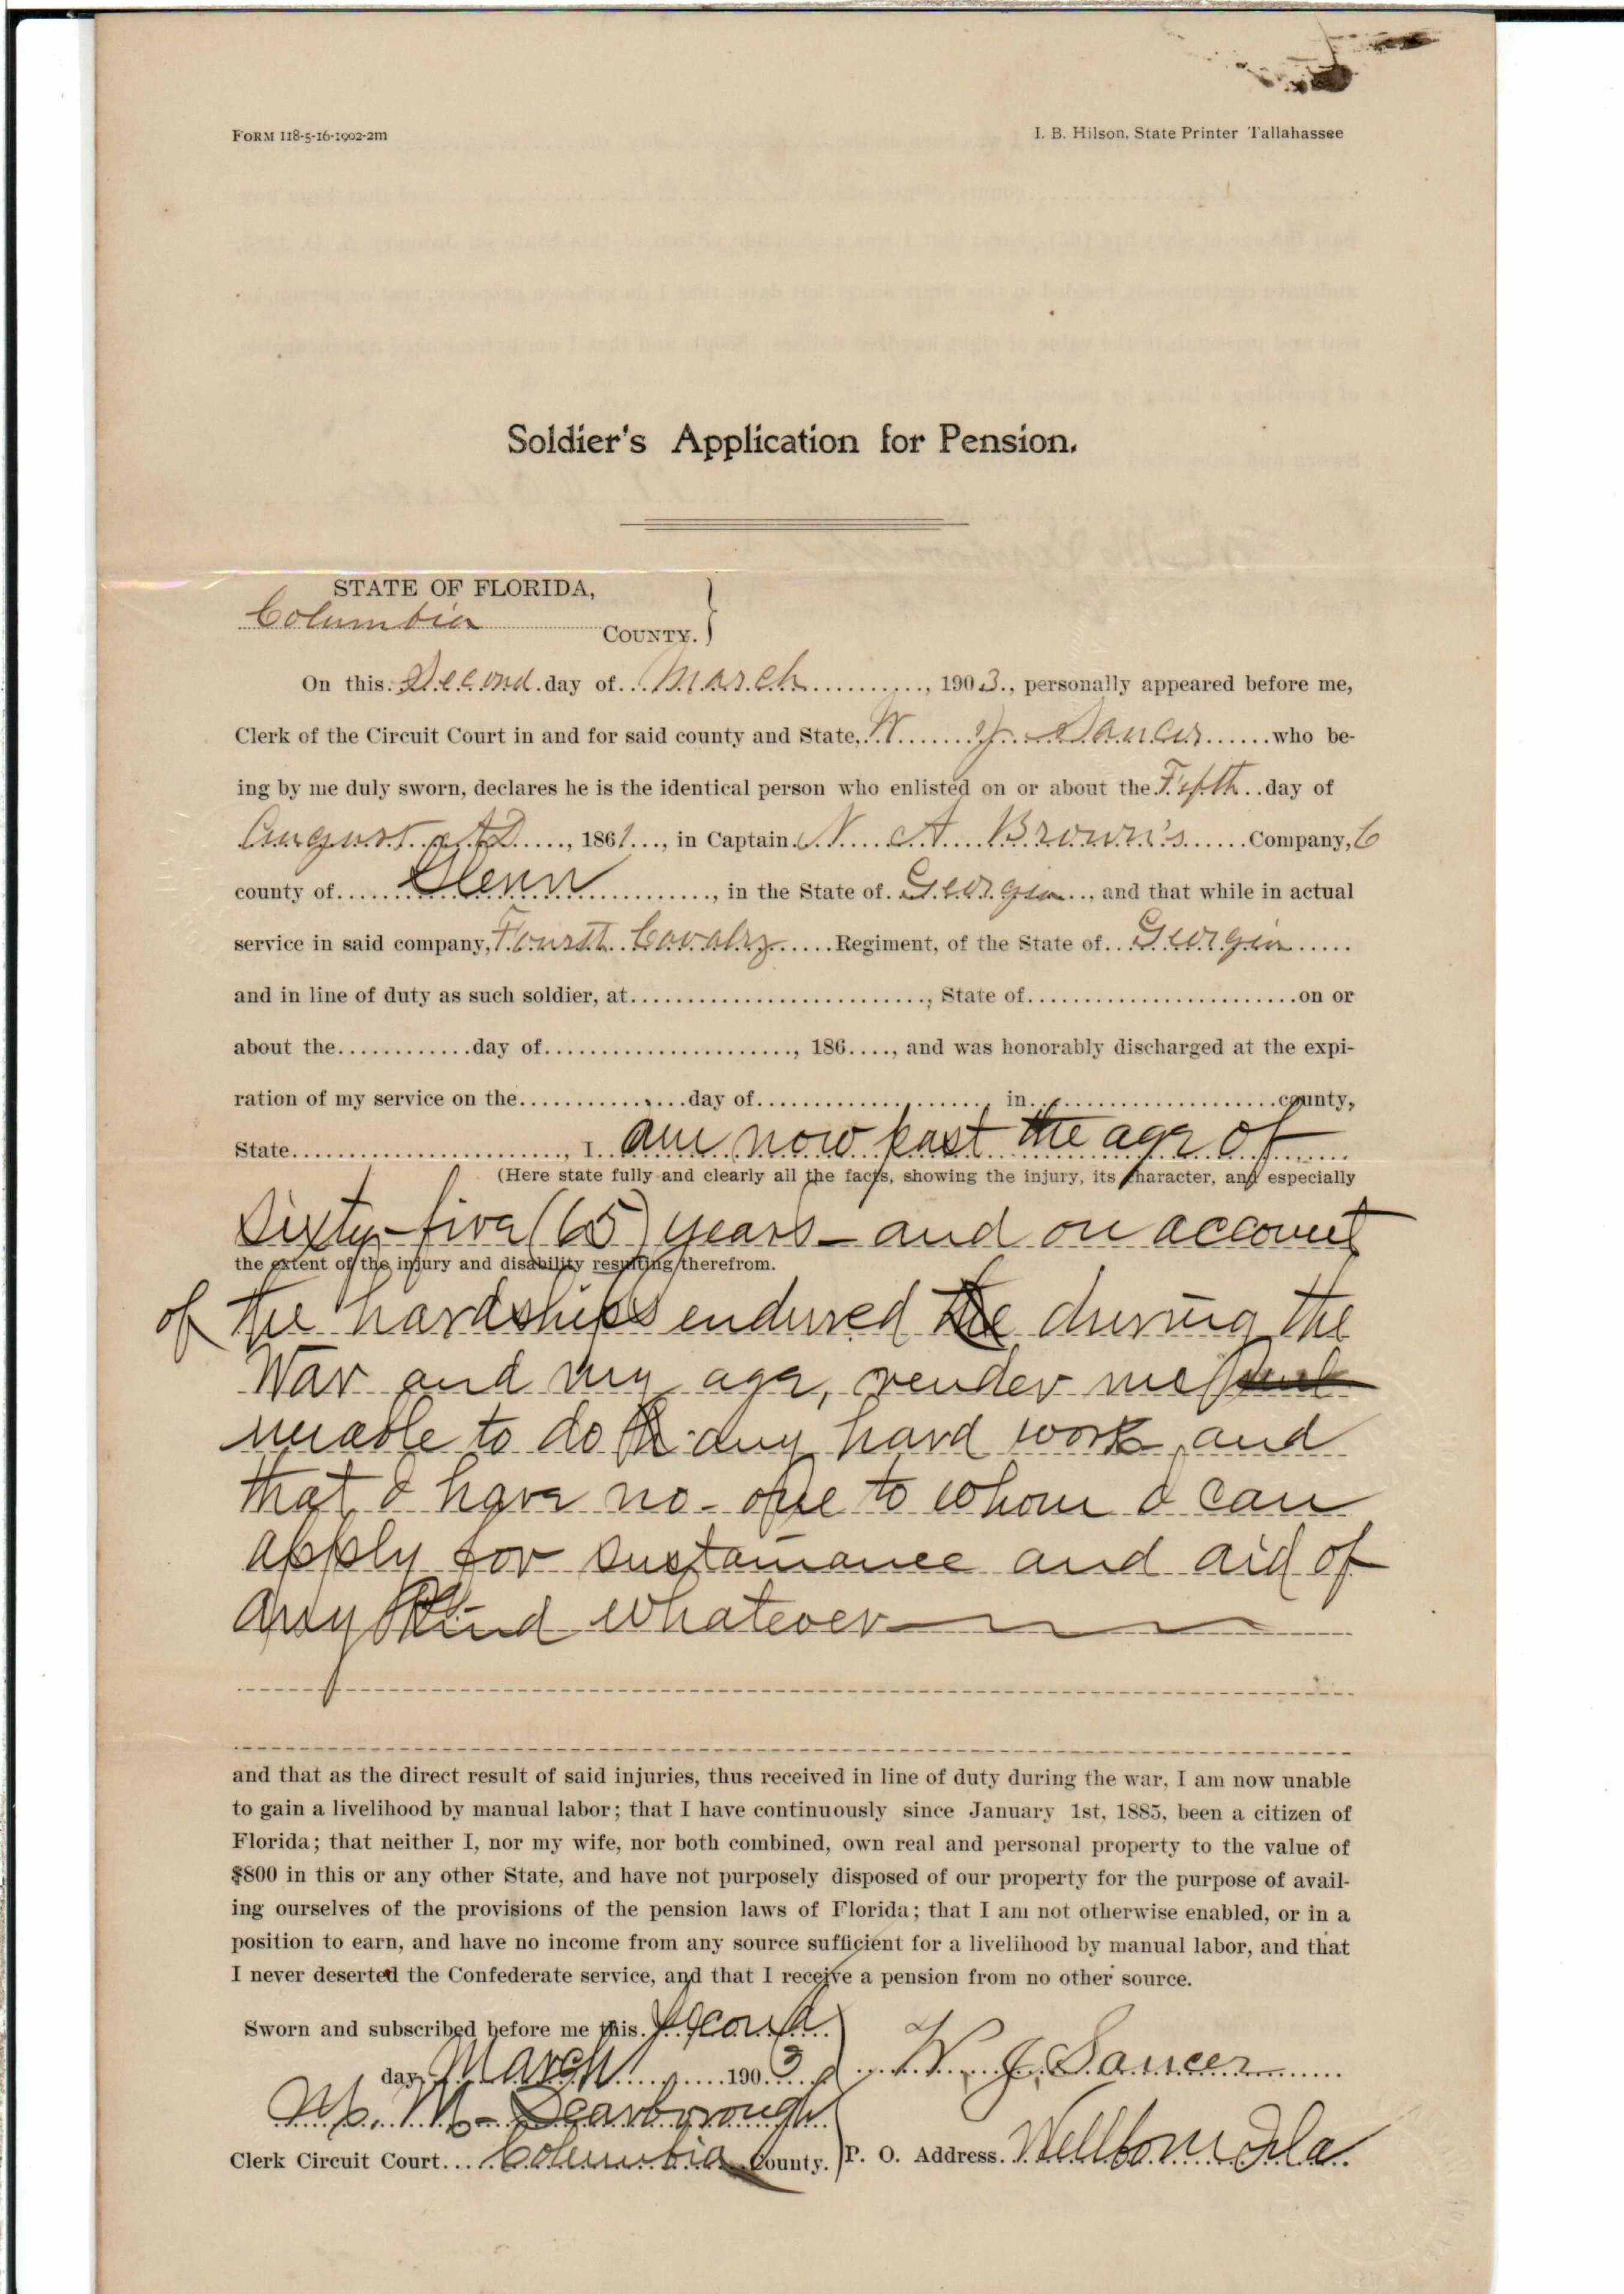 FORM 118-5-16-1902-2m
I. B. Hilson, State Printer Tallahassee
Soldier's Application for Pension.
STATE OF FLORIDA,
Columbia COUNTY. }
On this Second day of March, 1903, personally appeared before me,
Clerk of the Circuit Court in and for said county and State, W J Saucer who be-
ing by me duly sworn, declares he is the identical person who enlisted on or about the Fifth day of
August AD, 1861, in Captain N A Brown's Company, C
county of Glenn, in the State of Georgia, and that while in actual
service in said company, Fourth Cavalry Regiment, of the State of Georgia
and in line of duty as such soldier, at, State of on or
about the day of, 186, and was honorably discharged at the expi-
ration of my service on the day of in county,
State, I am now past the age of
(Here state fully and clearly all the facts, showing the injury, its character, and especially
Sixty-five (65) years - and on account
the extent of the injury and disability resulting therefrom.
of the hardships endured during the
War and my age, render me
unable to do any hard work, and
that I have no-one to whom I can
apply for sustainance and aid of
any kind whatever
and that as the direct result of said injuries, thus received in line of duty during the war, I am now unable
to gain a livelihood by manual labor; that I have continuously since January 1st, 1885, been a citizen of
Florida; that neither I, nor my wife, nor both combined, own real and personal property to the value of
$800 in this or any other State, and have not purposely disposed of our property for the purpose of avail-
ing ourselves of the provisions of the pension laws of Florida; that I am not otherwise enabled, or in a
position to earn, and have no income from any source sufficient for a livelihood by manual labor, and that
I never deserted the Confederate service, and that I receive a pension from no other source.
Sworn and subscribed before me this Second
day March 1903 W. J. Saucer
M. Scarborough
Clerk Circuit Court Columbia County. P. O. Address. Wellborn Fla.